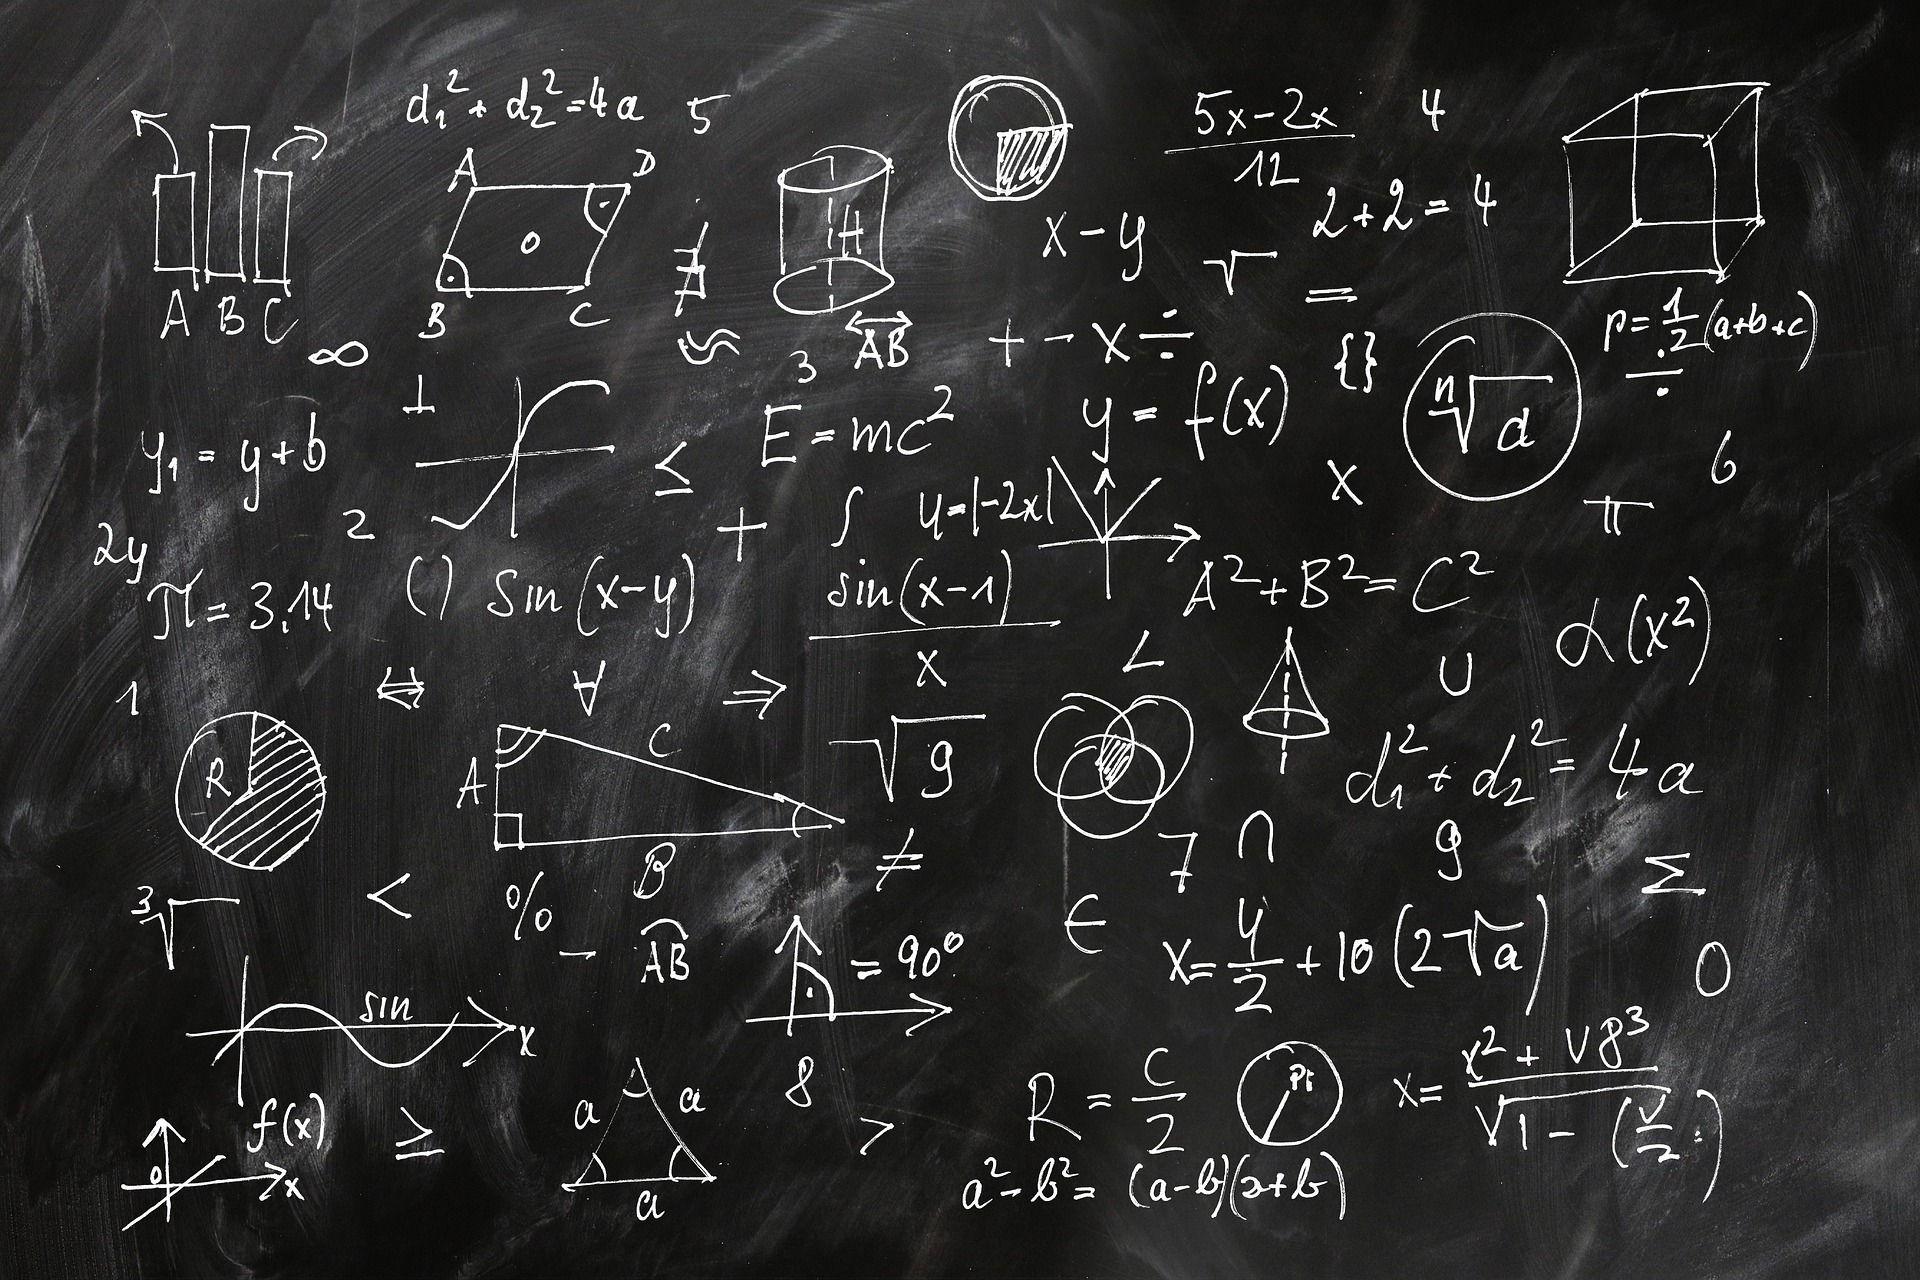 d₁² + d₂² = 4a
5
5x-2x
12
4
A D
O
B C
H
A B C
x-y
2+2=4
√
=
∞
AB
+ - x ÷
{}
p = 1/2 (a+b+c)
÷
3
⊥
E = mc²
y = f(x)
ⁿ√a
y₁ = y+b
≤
x
6
2
+
∫
y=|-2x|
π
2y
π = 3,14
() Sin (x-y)
sin(x-1)
x
A² + B² = C²
α(x²)
1
⇔
∀
⇒
∠
∪
R
A
C
B
√g
d₁² + d₂² = 4a
≠
7
∩
9
Σ
³√
<
%
-
AB
= 90°
∈
x = y/2 + 10 (2√a)
0
sin
x
8
R = c/2
Pi
x = x² + √8³
√1 - (v/2)
f(x)
0
x
≥
a a
a
>
a² - b² = (a-b)(a+b)